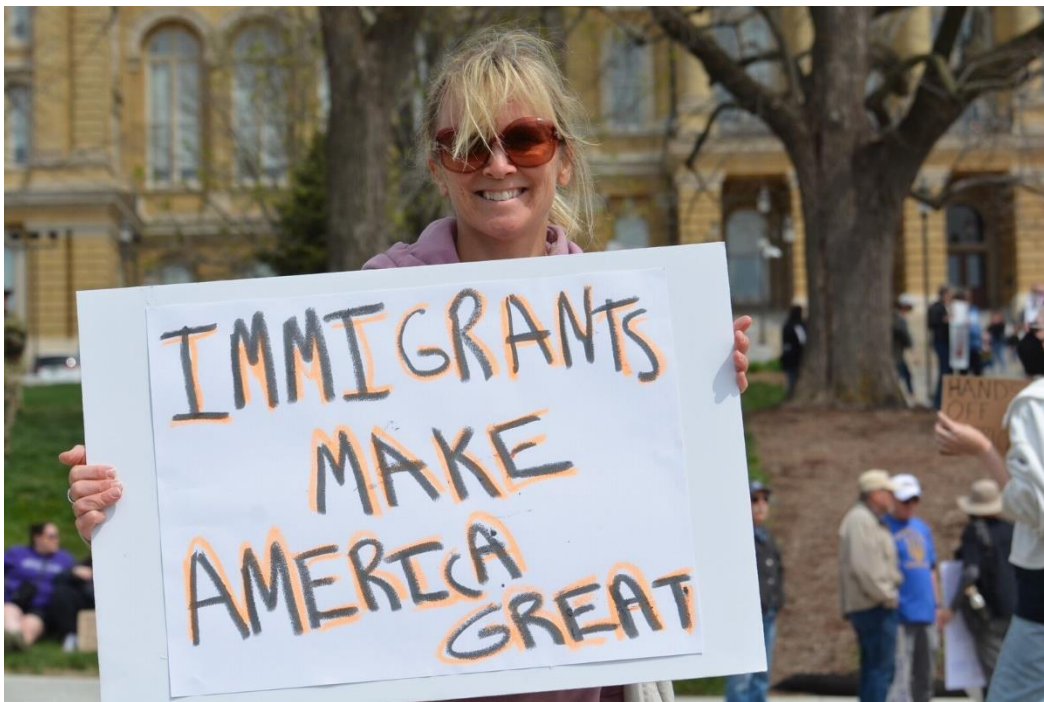 IMMIGRANTS
MAKE
AMERICA
GREAT
HANDS
OFF